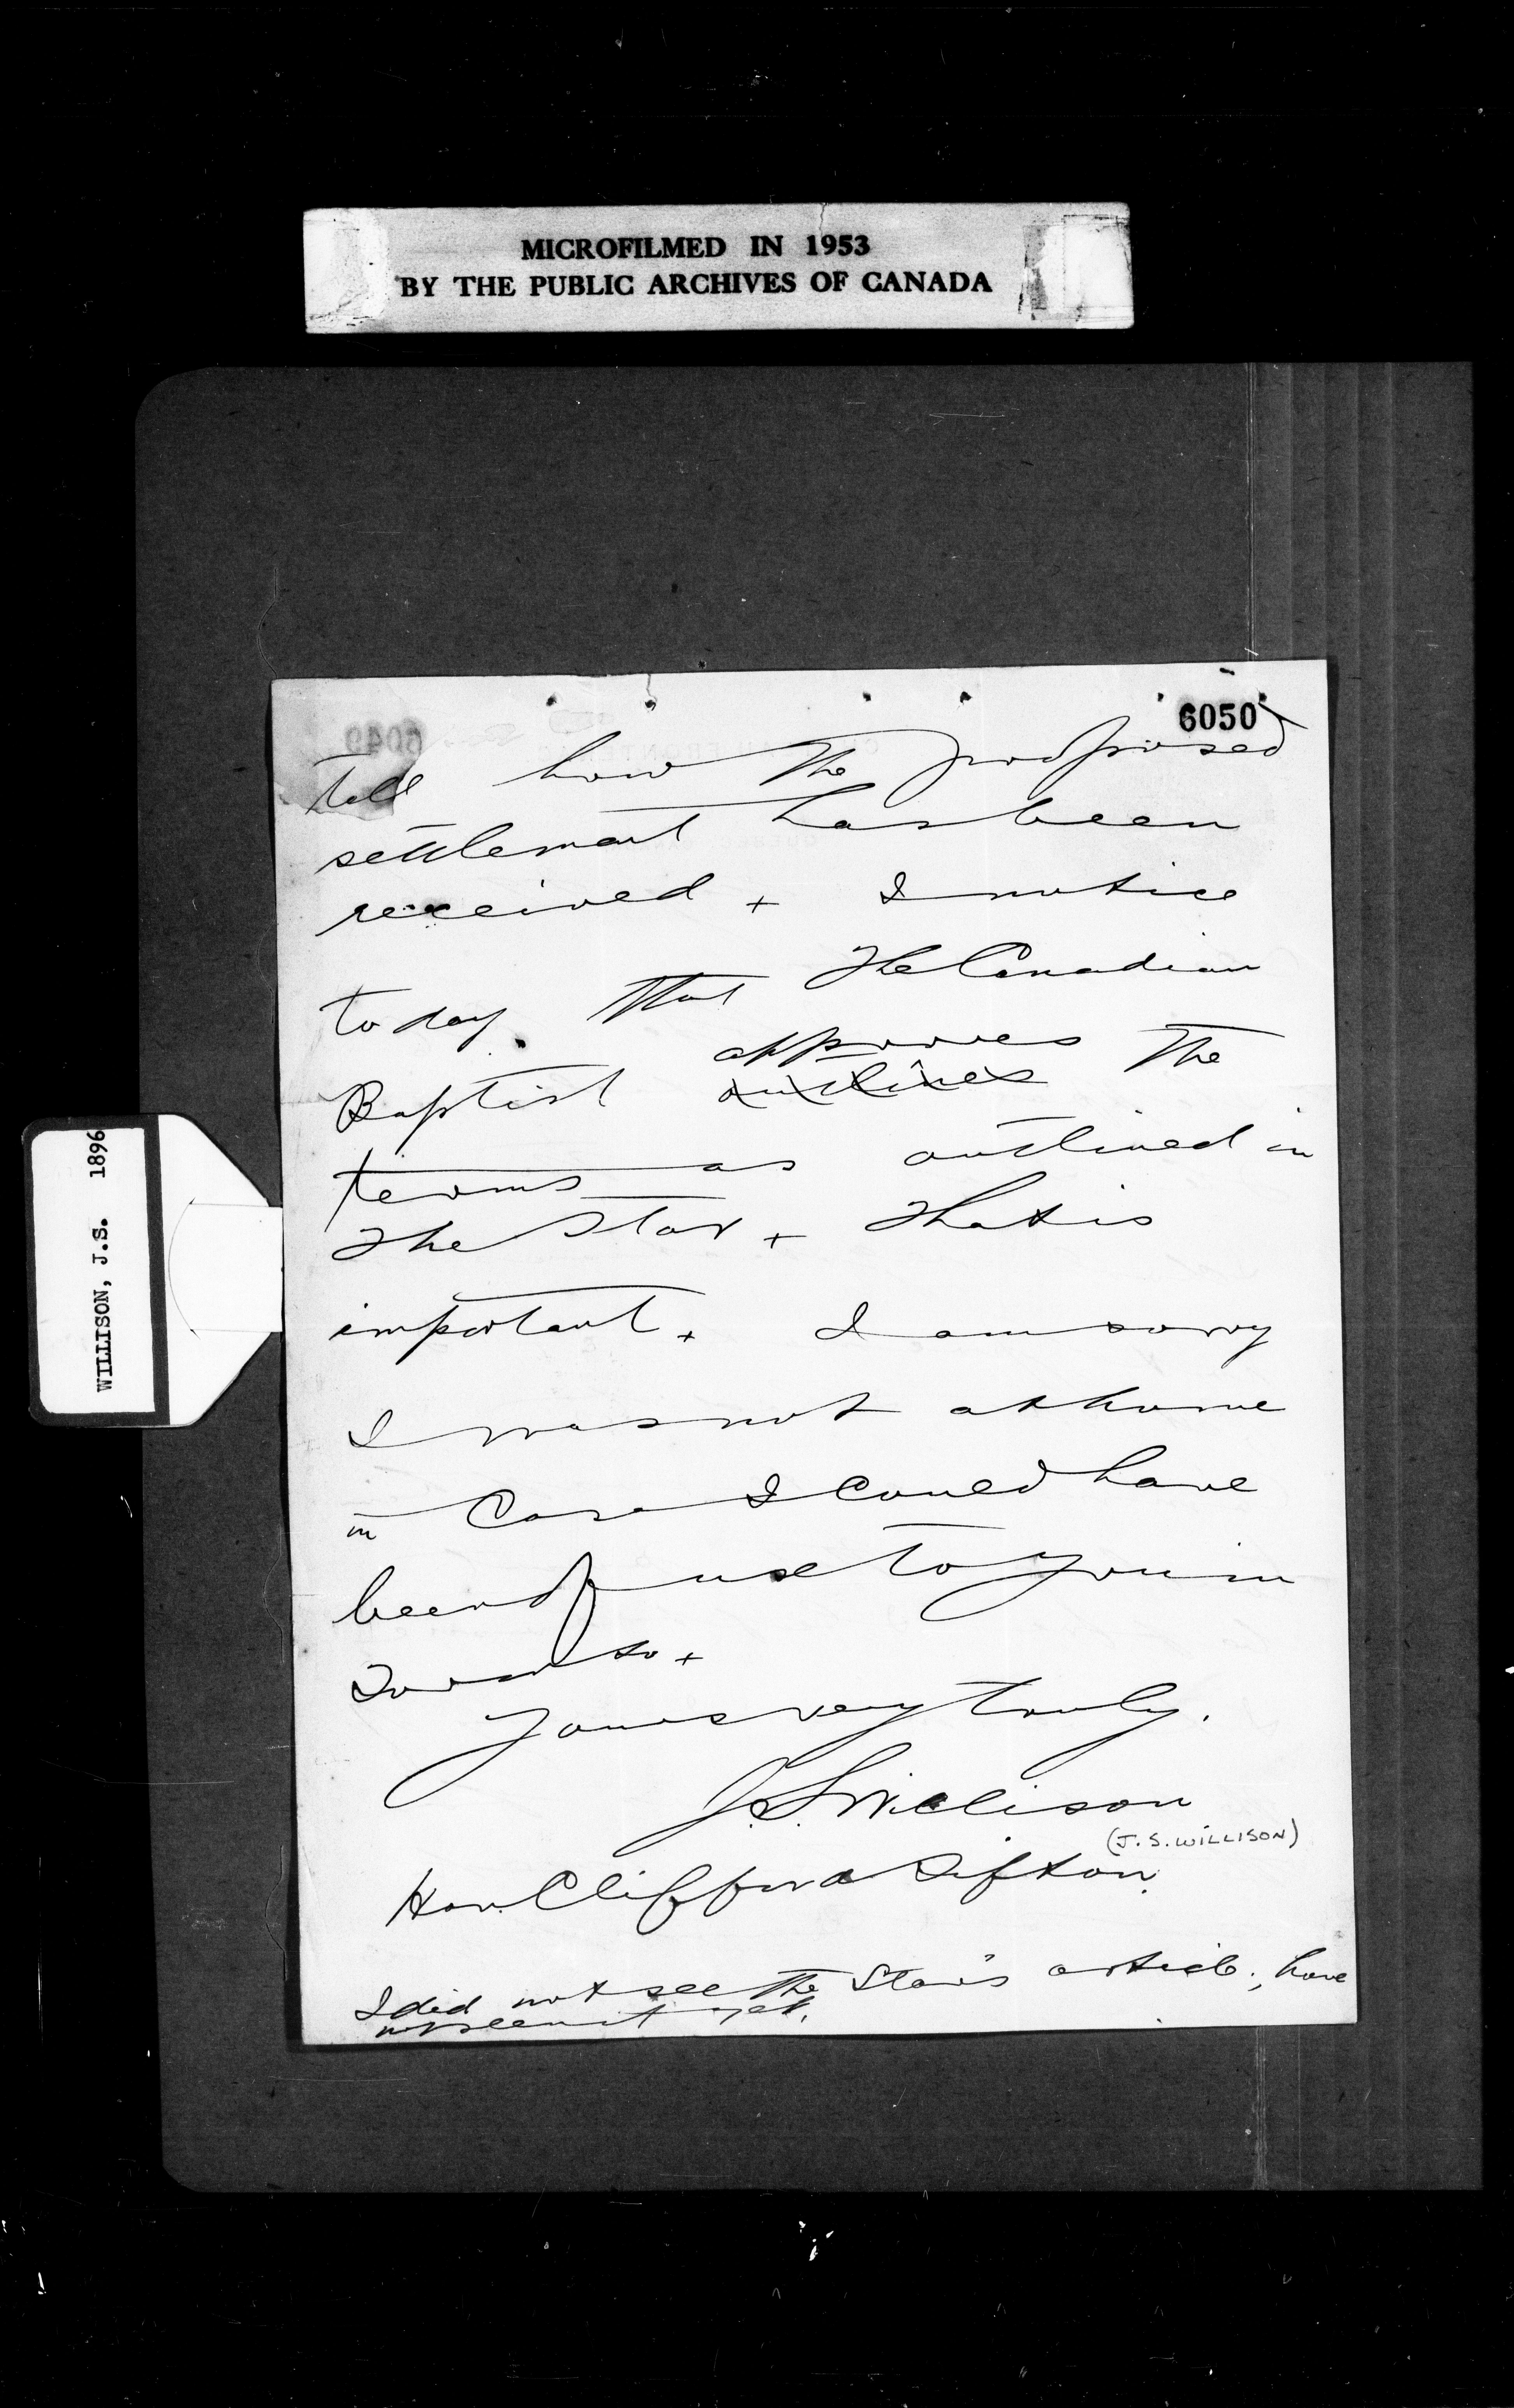 MICROFILMED IN 1953
BY THE PUBLIC ARCHIVES OF CANADA
6050
6049
told how the proposed
settlement has been
received + I notice
today that The Canadian
approves
Baptist outlines the
terms as outlined in
The Star + That is
important + I am sorry
I was not at home
in case I could have
been of use to you in
Toronto +
Yours very truly.
J.S. Willison
(J.S. WILLISON)
Hon. Clifford Sifton.
I did not see the Star's article; have
not seen it yet.
WILLISON, J.S. 1896